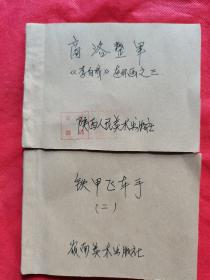 商洛整军
《李自成》连环画之三
陕西人民美术出版社
铁甲飞车手
（二）
岭南美术出版社